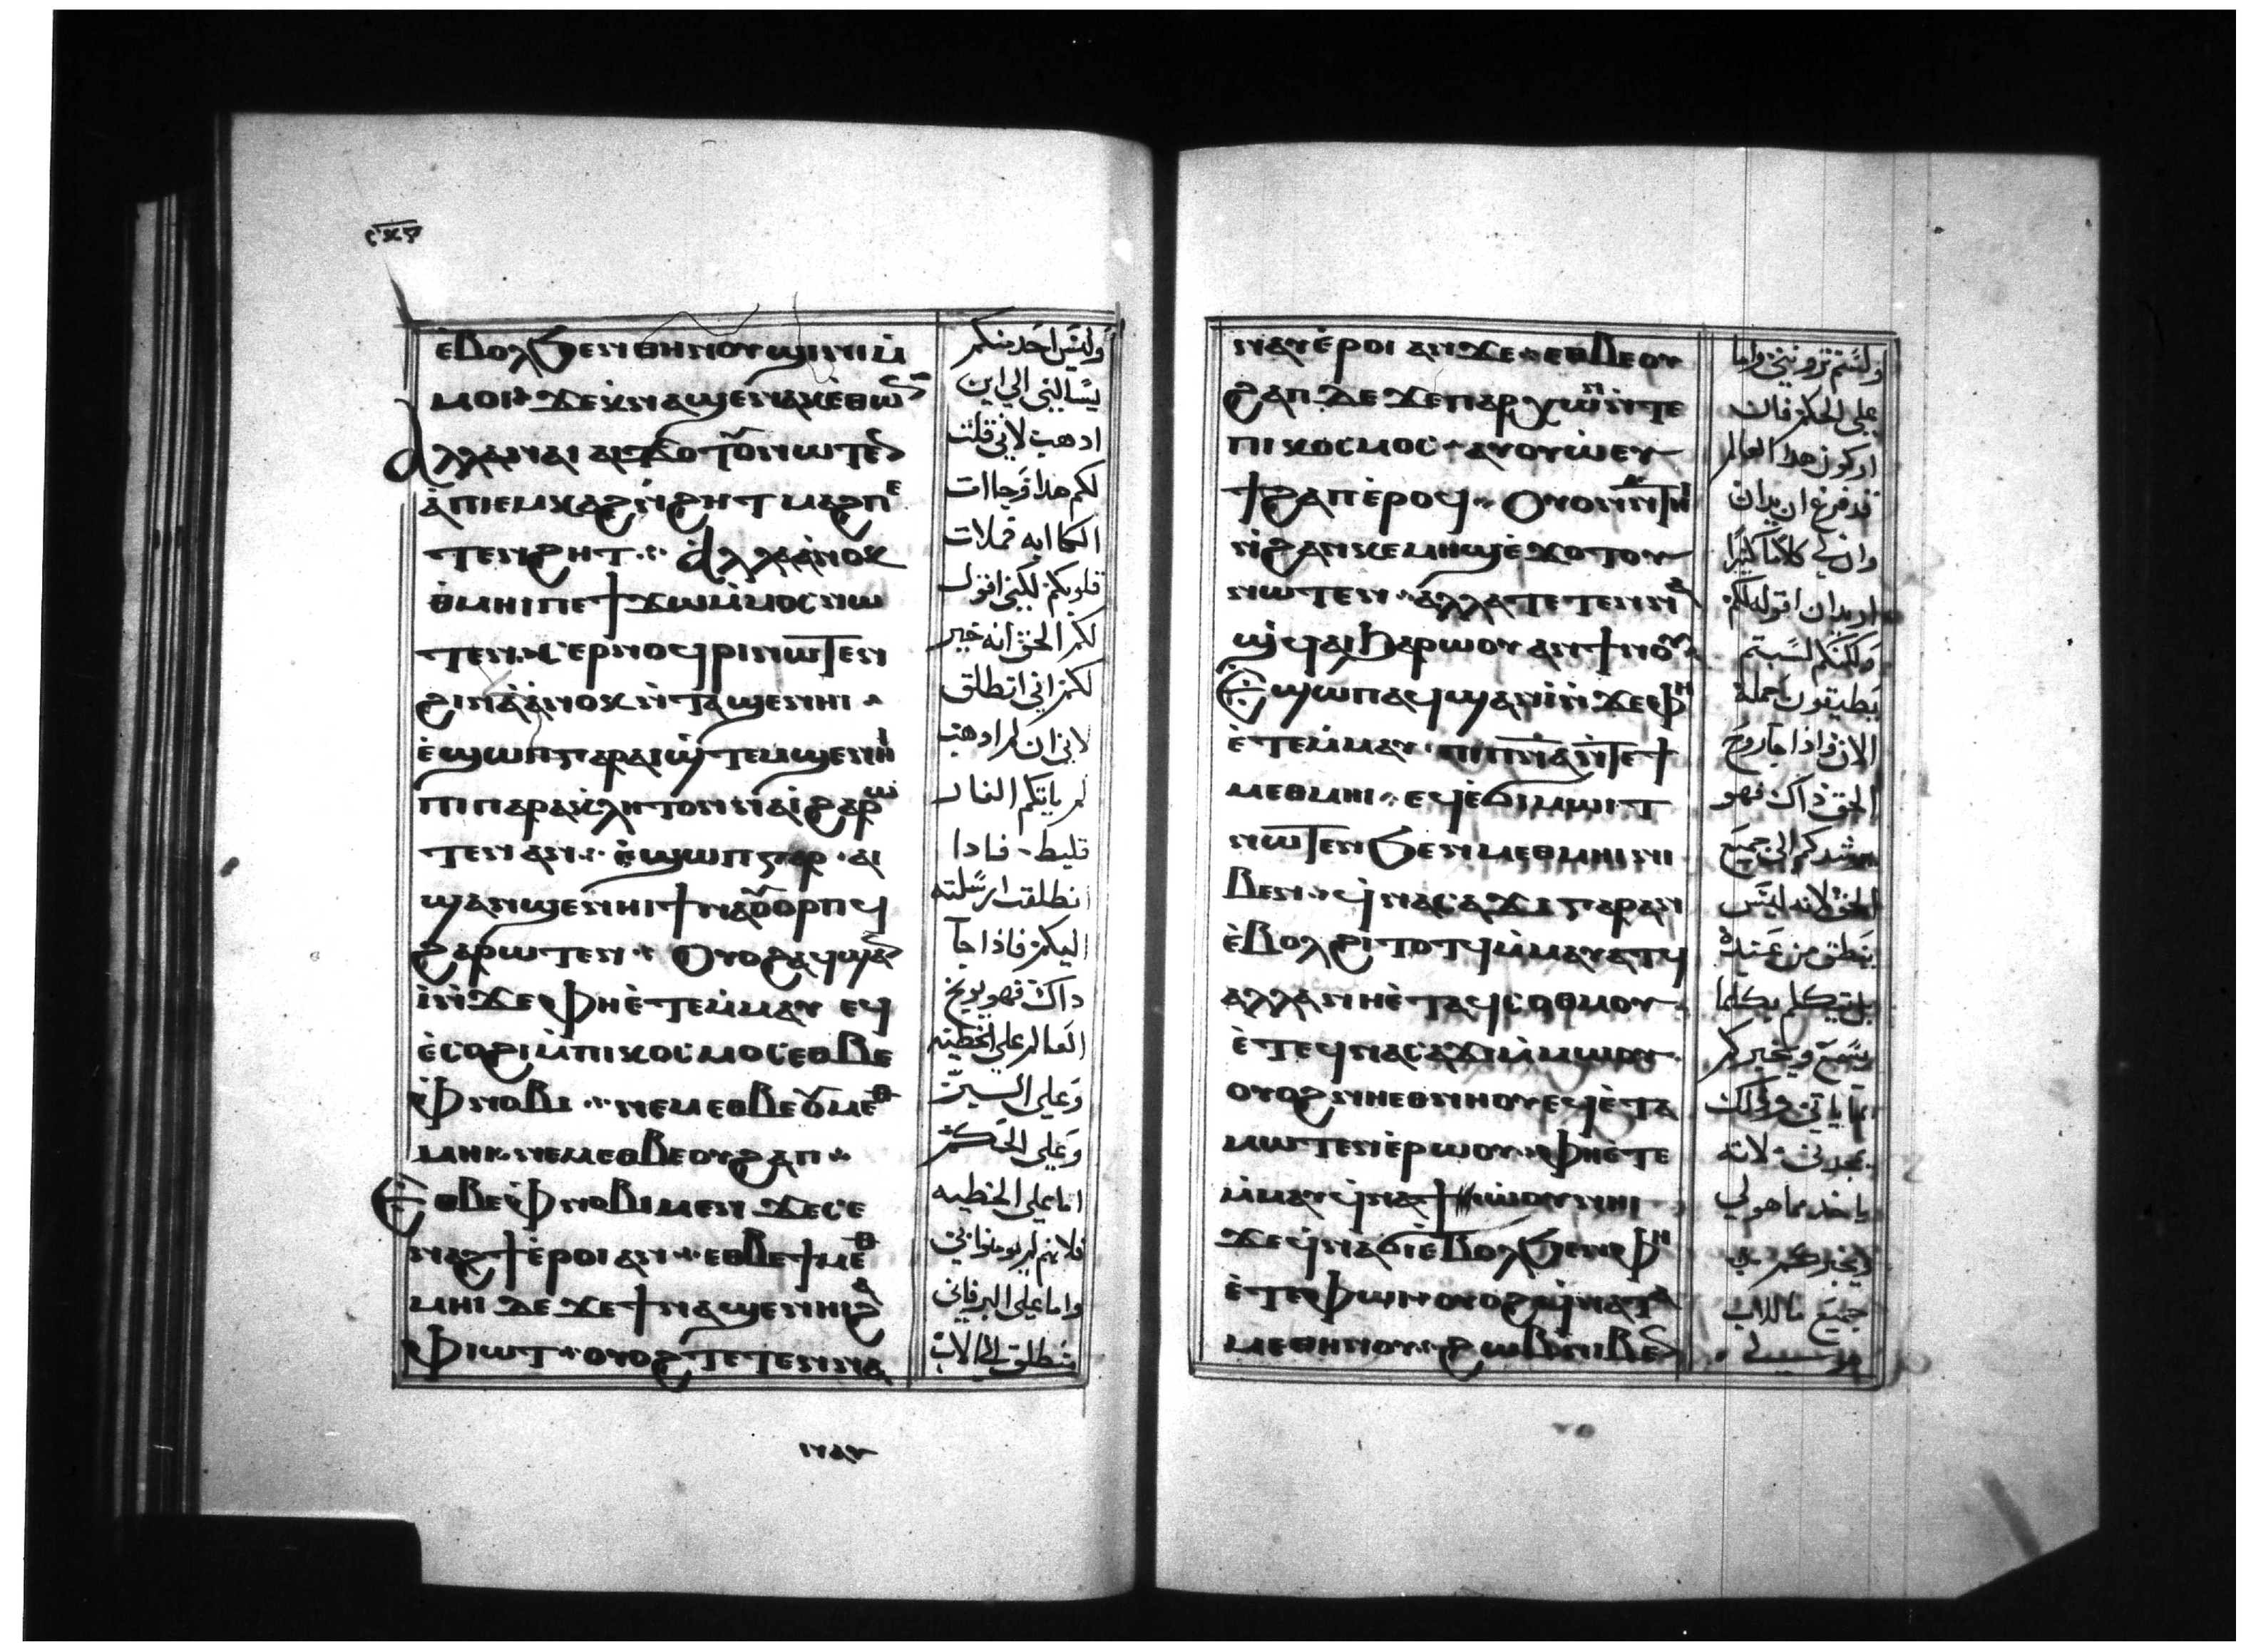 ⲉ̀ⲃⲟⲗϧⲉⲛⲑⲏⲛⲟⲩϣⲓⲛⲓⲙ̀
ⲙⲟⲓ ϫⲉⲭⲛⲁϣⲉⲛⲁⲕⲉ̀ⲑⲱⲛ
ⲁⲗⲗⲁⲛⲁⲓ ⲁⲓϫⲟⲧⲟⲩⲛⲱⲧⲉⲛ
ⲁ̀ⲡⲓⲉⲙⲕⲁϩⲛ̀ϩⲏⲧ ⲙⲁϩⲡⲉ
ⲧⲉⲛϩⲏⲧ ⲁⲗⲗⲁⲁ̀ⲛⲟⲕ
ⲑ̀ⲙⲏⲓⲡⲉϯϫⲱⲙ̀ⲙⲟⲥⲛⲱ
ⲧⲉⲛ ⲥⲉⲣⲛⲟϥⲣⲓⲛⲱⲧⲉⲛ
ϩⲓⲛⲁⲁ̀ⲛⲟⲕⲛ̀ⲧⲁϣⲉⲛⲏⲓ
ⲉ̀ϣⲱⲡⲅⲁⲣⲁⲓϣ̀ⲧⲉⲙϣⲉⲛⲏⲓ
ⲡⲓⲡⲁⲣⲁⲕⲗⲏⲧⲟⲛⲛⲁⲓ̀ϩⲁⲣⲱ
ⲧⲉⲛ ⲁⲛ ⲉ̀ϣⲱⲡⲅⲁⲣ ⲁⲓ
ϣⲁⲛϣⲉⲛⲏⲓϯⲛⲁⲟⲩⲟⲣⲡϥ
ϩⲁⲣⲱⲧⲉⲛ ⲟⲩⲟϩⲁϥϣⲁⲛ
ⲓ̀ⲛ̀ϫⲉⲫⲏⲉ̀ⲧⲉⲙ̀ⲙⲁⲩ ⲉϥ
ⲉ̀ⲥⲟϩⲓⲙ̀ⲡⲓⲕⲟⲥⲙⲟⲥⲉⲑⲃⲉ
ⲫ̀ⲛⲟⲃⲓ ⲛⲉⲙⲉⲑⲃⲉⲟⲩⲙⲉⲑ
ⲙⲏⲓ ⲛⲉⲙⲉⲑⲃⲉⲟⲩϩⲁⲡ
ⲉⲑⲃⲉⲫ̀ⲛⲟⲃⲓⲙⲉⲛ ϫⲉⲥⲉ
ⲛⲁϩϯⲉ̀ⲣⲟⲓ ⲁⲛ ⲉⲑⲃⲉϯⲙⲉⲑ
ⲙⲏⲓ ⲇⲉ ϫⲉϯⲛⲁϣⲉⲛⲏⲓϩⲁ
ⲫ̀ⲓⲱⲧ ⲟⲩⲟϩⲧⲉⲧⲉⲛⲛⲁ
وليس احد منكم
يسالني الي اين
اذهب لاني قلت
لكم هذا فجاات
الكاابه فملات
قلوبكم لكني اقول
لكم الحق انه خير
لكم اني انطلق
لاني ان لم اذهب
لم ياتكم الفار
قليط فاذا
انطلقت ارسلته
اليكم فاذا جآ
ذاك فهو يوبخ
العالم علي الخطيه
وعلي البر
وعلي الحكم
اما علي الخطيه
فلانهم لم يومنوا بي
واما علي البر فاني
منطلق الي الاب
ⲛⲁⲩⲉ̀ⲣⲟⲓ ⲁⲛϫⲉ ⲉⲑⲃⲉⲟⲩ
ϩⲁⲡ ⲇⲉ ϫⲉⲡⲁⲣⲭⲱⲛⲛ̀ⲧⲉ
ⲡⲓⲕⲟⲥⲙⲟⲥ ⲁⲩⲟⲩⲱ̀ⲉⲩ
ϯϩⲁⲡⲉ̀ⲣⲟϥ ⲟⲩⲟⲛⲛ̀ⲧⲏⲓ
ⲛ̀ϩⲁⲛⲕⲉⲙⲏϣⲉ̀ϫⲟⲧⲟⲩ
ⲛⲱⲧⲉⲛ ⲁⲗⲗⲁⲧⲉⲧⲉⲛⲛⲁ
ϣϥⲁⲓϧⲁⲣⲱⲟⲩ ⲁⲛϯⲛⲟⲩ
ⲉϣⲱⲡⲁϥϣⲁⲛⲓ̀ⲛ̀ϫⲉⲫⲏ
ⲉ̀ⲧⲉⲙ̀ⲙⲁⲩ ⲡⲓⲡⲛⲁⲛ̀ⲧⲉϯ
ⲙⲉⲑⲙⲏⲓ ⲉϥⲉ̀ϭⲓⲙⲱⲓⲧ
ⲛⲱⲧⲉⲛϧⲉⲛⲙⲉⲑⲙⲏⲓⲛⲓ
ⲃⲉⲛ ϥⲛⲁⲥⲁϫⲓⲅⲁⲣⲁⲛ
ⲉ̀ⲃⲟⲗϩⲓⲧⲟⲧϥⲙ̀ⲙⲁⲩⲁⲧϥ
ⲁⲗⲗⲁⲛⲏⲉ̀ⲧⲁϥⲥⲟⲑⲙⲟⲩ
ⲉ̀ⲧⲉϥⲛⲁⲥⲁϫⲓⲙ̀ⲙⲱⲟⲩ
ⲟⲩⲟϩⲛⲏⲉⲑⲛⲏⲟⲩⲉϥⲉ̀ⲧⲁ
ⲙⲱⲧⲉⲛⲉ̀ⲣⲱⲟⲩ ⲫⲏⲉ̀ⲧⲉ
ⲙ̀ⲙⲁⲩϥⲛⲁϯⲱ̀ⲟⲩⲛⲏⲓ
ϫⲉϥⲛⲁϭⲓⲉ̀ⲃⲟⲗϧⲉⲛⲫⲏ
ⲉ̀ⲧⲉⲫⲱⲓ ⲟⲩⲟϩϥⲛⲁⲧⲁ
ⲙⲉⲑⲏⲛⲟⲩ ϩⲱⲃⲛⲓⲃⲉⲛ
ولستم ترونني واما
علي الحكم فان
اركون هذا العالم
قد فرغ ان يدان
وان لي كلاما كثيرا
اريدان اقوله لكم
ولكنكم لستم
تطيقون حمله
الان فاذا جآ روح
الحق ذاك فهو
يرشدكم الي جميع
الحق لانه ليس
ينطق من عنده
بل يتكلم بكلما
يسمع ويخبركم
بما ياتي
لانه
ياخذ مما هو لي
ويخبركم
جميع ما للاب
هو لي